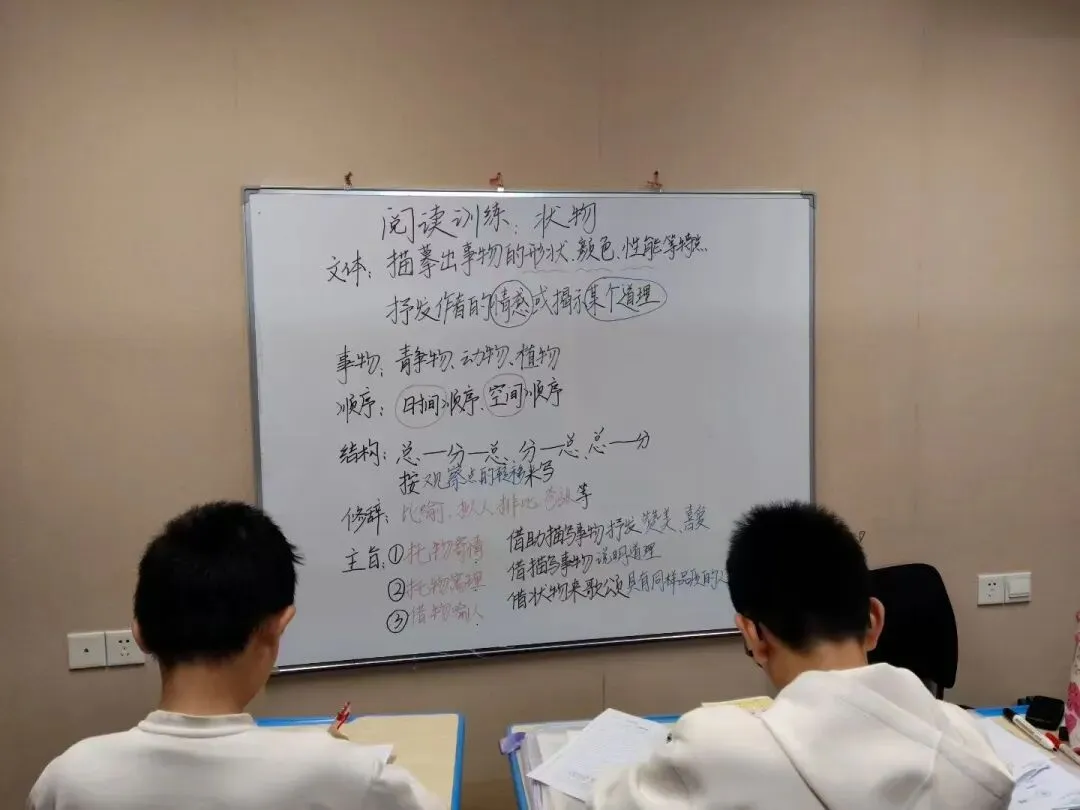 阅读训练：状物
文体：描摹出事物的形状、颜色、性能等特点，
抒发作者的情感或揭示某个道理
事物：静物、动物、植物
顺序：时间顺序、空间顺序
结构：总一分一总、分一总、总一分
按观察点的转移来写
修辞：比喻、拟人、排比、等
主旨：①托物寄情 借助描写事物抒发赞美、喜爱
②托物寓理 借描写事物说明道理
③借物喻人 借状物来歌颂具有同样品质的人